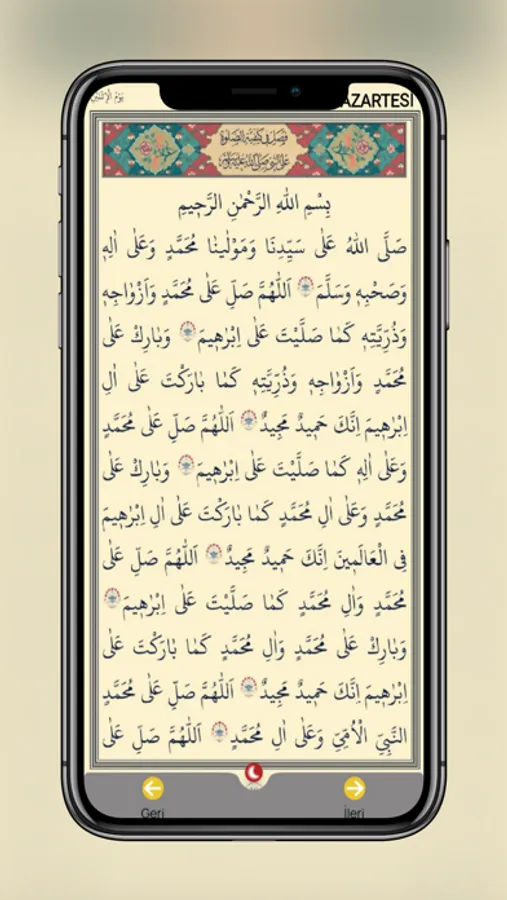 يَوْمُ الْاِثْنَيْنِ
AZARTESİ
فَصْلٌ فِى كَيْفِيَّةِ الصَّلٰوةِ
عَلَى النَّبِىِّ صَلَّى اللّٰهُ عَلَيْهِ وَسَلَّمَ
بِسْمِ اللّٰهِ الرَّحْمٰنِ الرَّحٖيمِ
صَلَّى اللّٰهُ عَلٰى سَيِّدِنَا وَمَوْلٰينَا مُحَمَّدٍ وَعَلٰى اٰلِهٖ
وَصَحْبِهٖ وَسَلَّمَ اَللّٰهُمَّ صَلِّ عَلٰى مُحَمَّدٍ وَاَزْوَاجِهٖ
وَذُرِّيَّتِهٖ كَمَا صَلَّيْتَ عَلٰى اِبْرٰهٖيمَ وَبَارِكْ عَلٰى
مُحَمَّدٍ وَاَزْوَاجِهٖ وَذُرِّيَّتِهٖ كَمَا بَارَكْتَ عَلٰى اٰلِ
اِبْرٰهٖيمَ اِنَّكَ حَمٖيدٌ مَجٖيدٌ اَللّٰهُمَّ صَلِّ عَلٰى مُحَمَّدٍ
وَعَلٰى اٰلِهٖ كَمَا صَلَّيْتَ عَلٰى اِبْرٰهٖيمَ وَبَارِكْ عَلٰى
مُحَمَّدٍ وَعَلٰى اٰلِ مُحَمَّدٍ كَمَا بَارَكْتَ عَلٰى اٰلِ اِبْرٰهٖيمَ
فِى الْعَالَمٖينَ اِنَّكَ حَمٖيدٌ مَجٖيدٌ اَللّٰهُمَّ صَلِّ عَلٰى
مُحَمَّدٍ وَاٰلِ مُحَمَّدٍ كَمَا صَلَّيْتَ عَلٰى اِبْرٰهٖيمَ
وَبَارِكْ عَلٰى مُحَمَّدٍ وَاٰلِ مُحَمَّدٍ كَمَا بَارَكْتَ عَلٰى
اِبْرٰهٖيمَ اِنَّكَ حَمٖيدٌ مَجٖيدٌ اَللّٰهُمَّ صَلِّ عَلٰى مُحَمَّدٍ
النَّبِيِّ الْاُمِّيِّ وَعَلٰى اٰلِ مُحَمَّدٍ اَللّٰهُمَّ صَلِّ عَلٰى
Geri
İleri